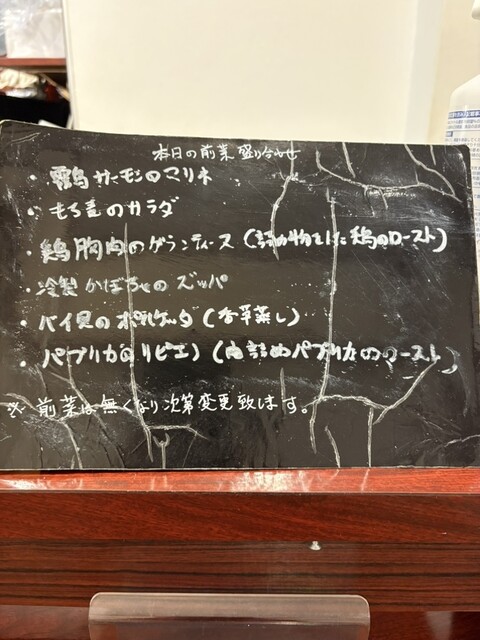 本日の前菜盛り合わせ
・霧島サーモンのマリネ
・もち麦のサラダ
・鶏胸肉のガランティーヌ(詰め物をした鶏のロースト)
・冷製かぼちゃのズッパ
・バイ貝の(香草蒸し)
・パプリカのリピエ)(肉詰めパプリカのロースト)
※前菜は無くなり次第変更致します。